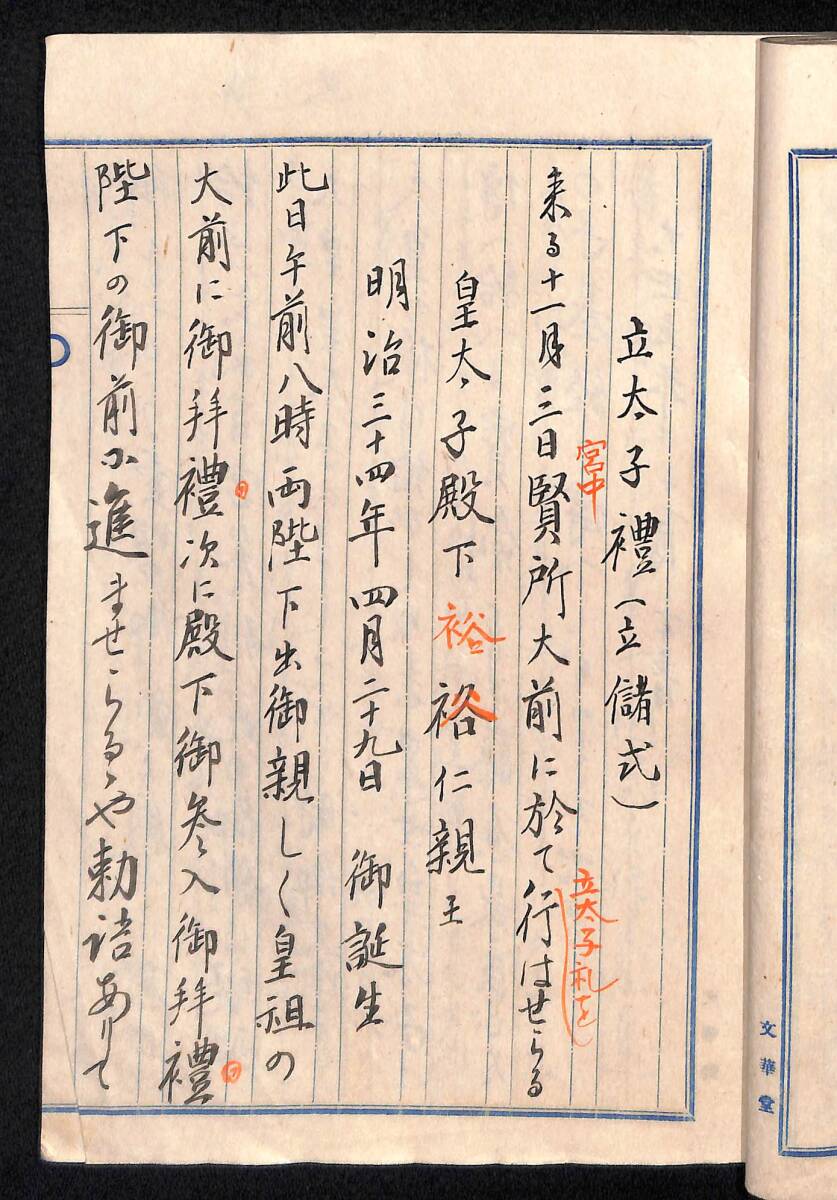 立太子禮（立儲式）
宮中
立太子礼を
来る十一月三日賢所大前に於て行はせらる
皇太子殿下裕裕仁親王
明治三十四年四月二十九日 御誕生
此日午前八時両陛下出御親しく皇祖の
大前に御拝禮次に殿下御参入御拝禮
陛下の御前に進ませらるゝや勅語ありて
文華堂